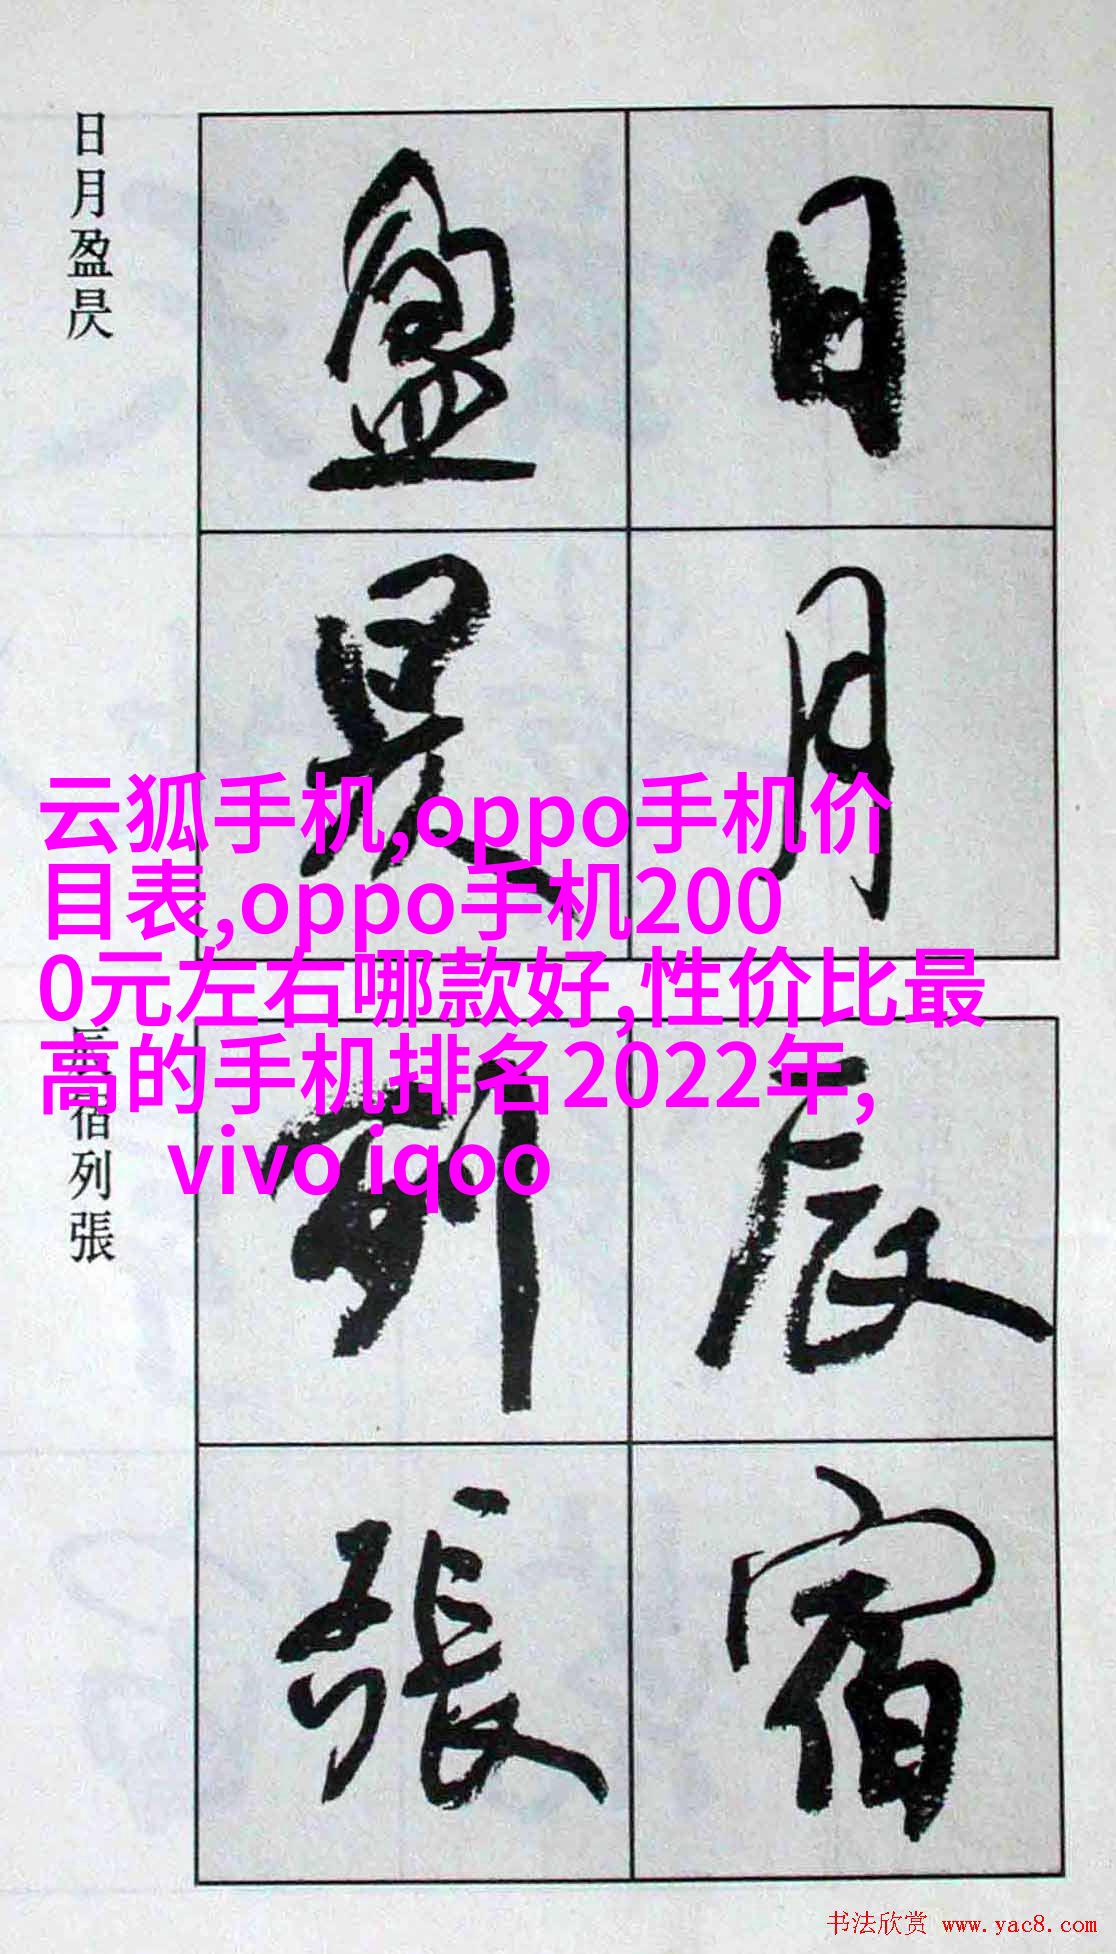 日月
盈昃
日月盈昃
云狐手机,oppo手机价
目表,oppo手机200
0元左右哪款好,性价比最
高的手机排名2022年,
vivo iqoo
辰宿
列張
辰宿列張
书法欣赏 www.yac8.com